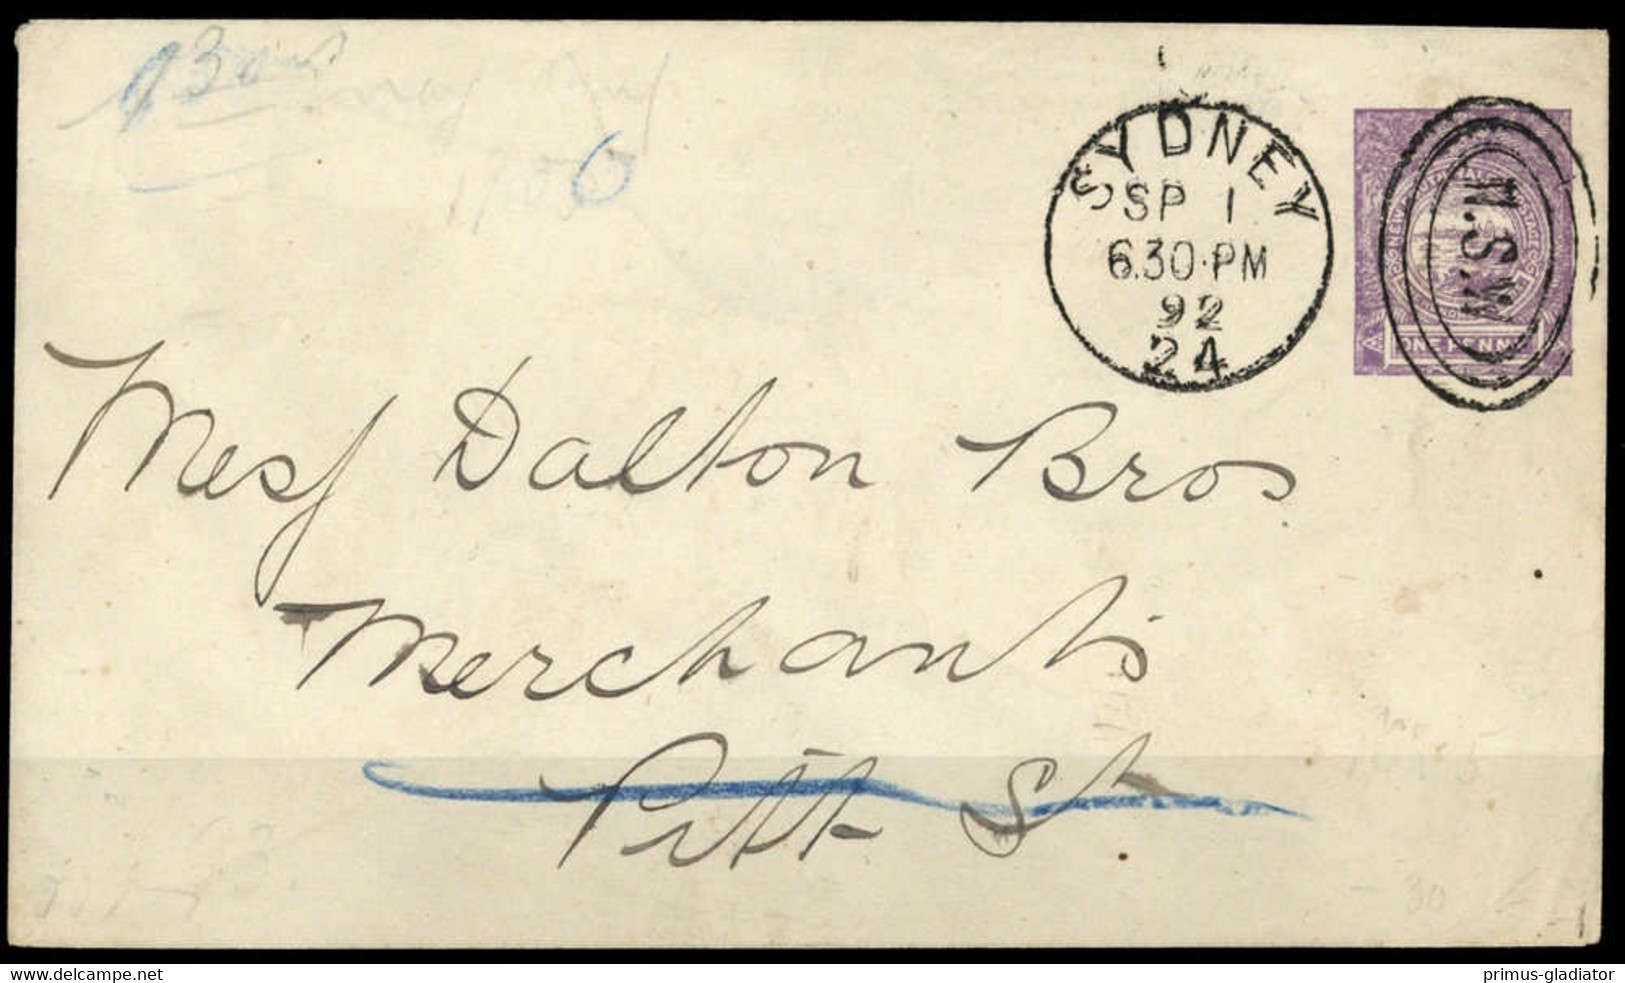 SYDNEY
SP 1
6.30·PM
92
24
N.S.W.
ONE PENNY
Mess Dalton Bros
Merchants
Pitt St.
www.delcampe.net
primus-gladiator